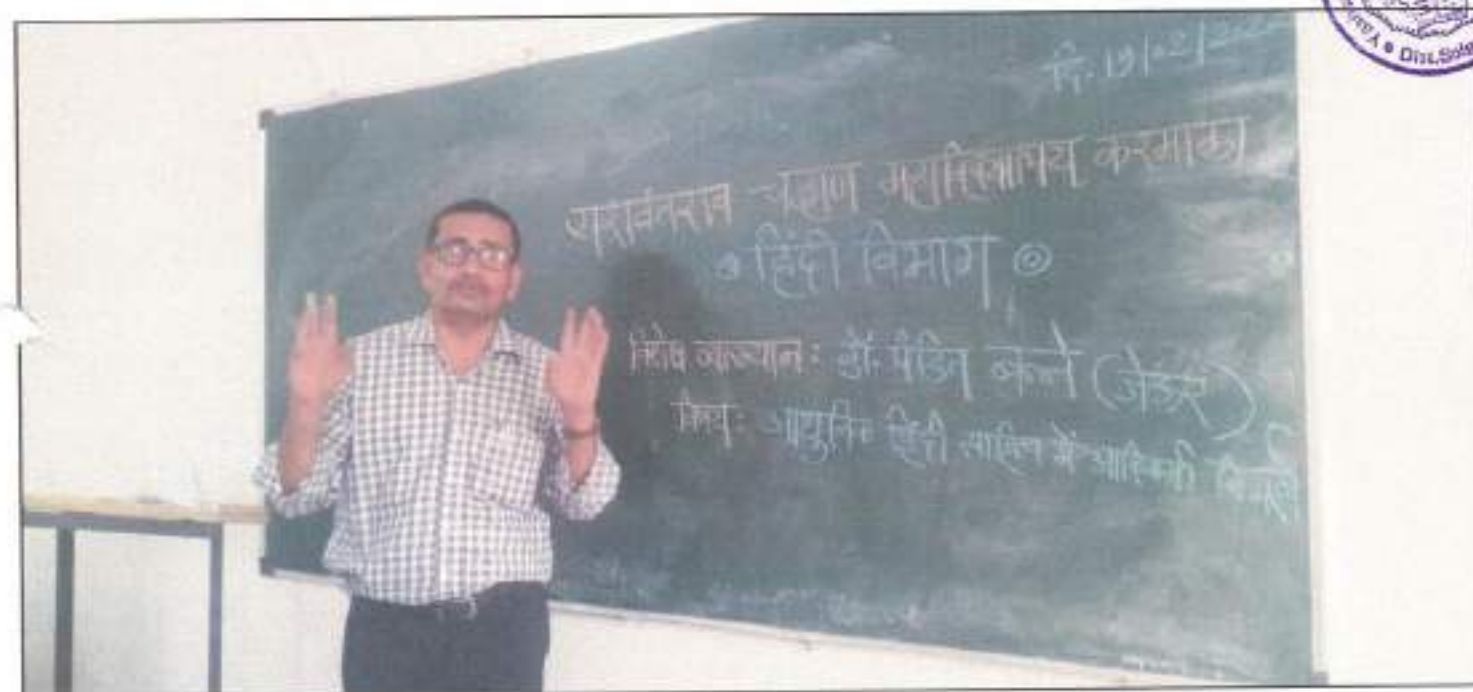 दि. 19/02/202
यशवंतराव चव्हाण महाविद्यालय करमाळा
हिंदी विभाग
विशेष व्याख्यान : डॉ. पंडित बन्ने (जेऊर)
विषय : आधुनिक हिंदी साहित्य में आदिवासी विमर्श
Dist.Sola